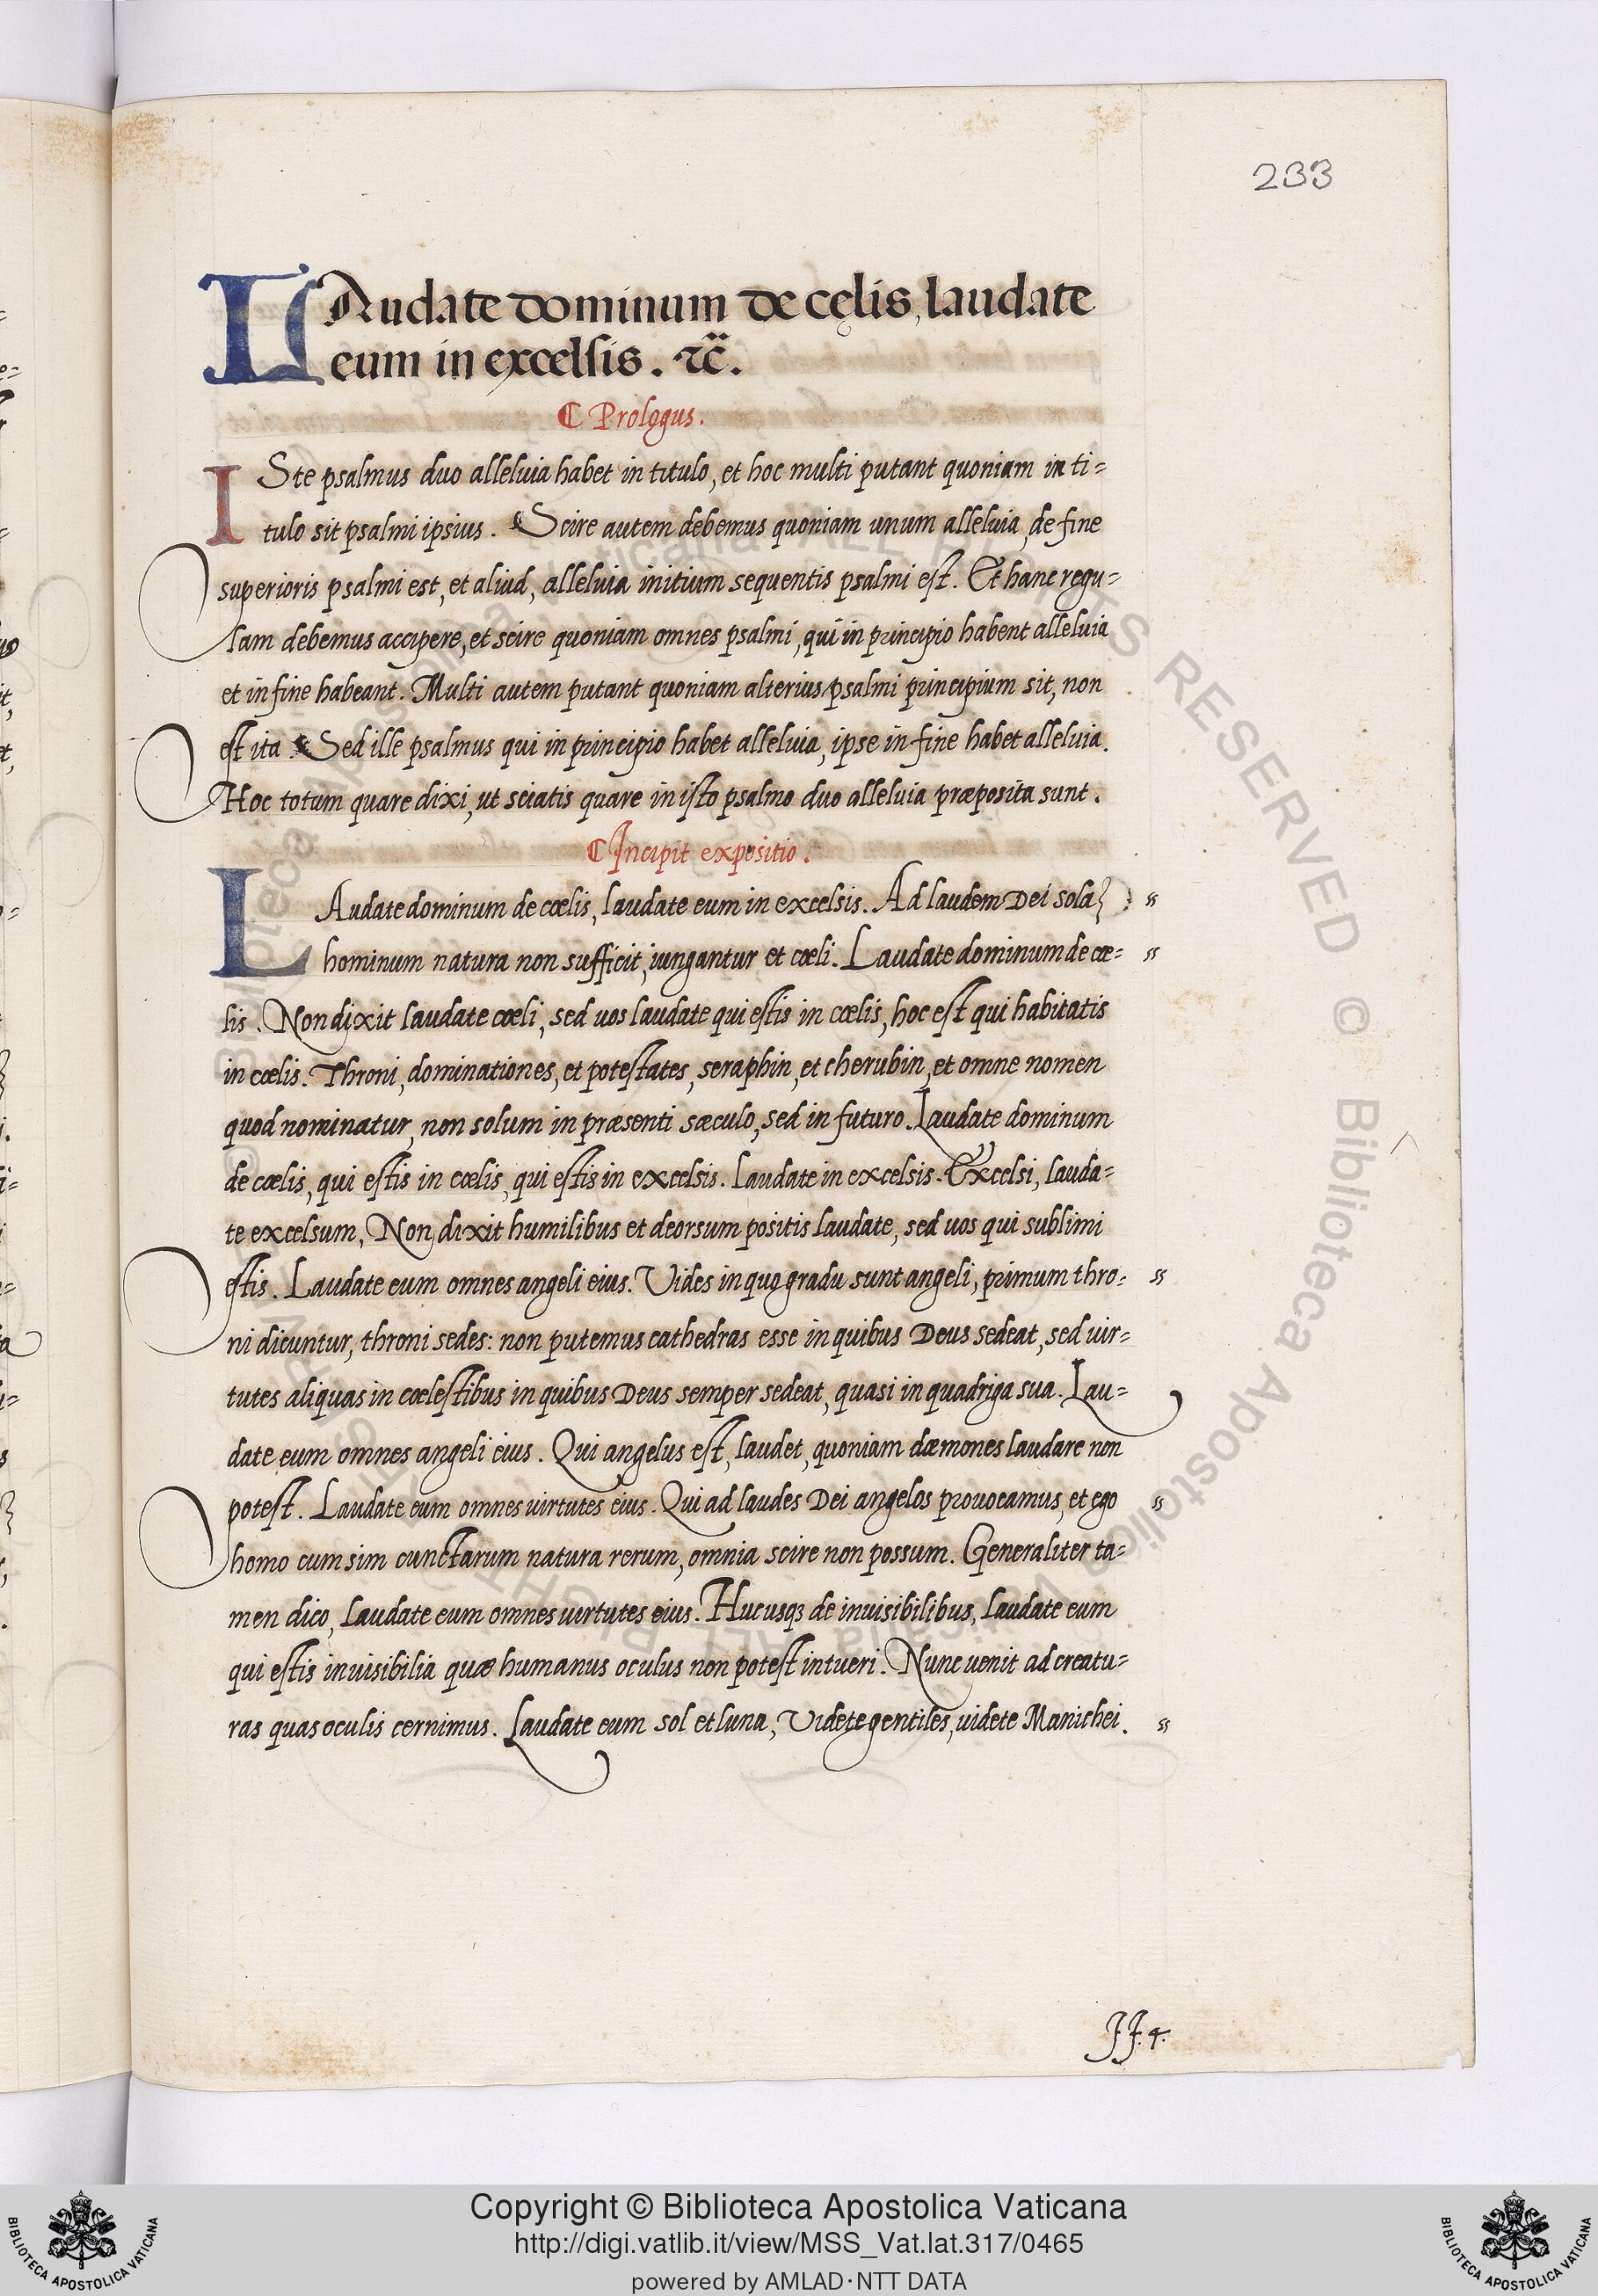 233
LAudate dominum de cęlis, laudate
eum in excelsis. ⁊c̈.
¶ Prologus.
ISte psalmus duo alleluia habet in titulo, et hoc multi putant quoniam in ti=
tulo sit psalmi ipsius. Scire autem debemus quoniam unum alleluia, de fine
superioris psalmi est, et aliud, alleluia initium sequentis psalmi est. Et hanc regu=
lam debemus accipere, et scire quoniam omnes psalmi, qui in principio habent alleluia
et in fine habeant. Multi autem putant quoniam alterius psalmi principium sit, non
est ita. Sed ille psalmus qui in principio habet alleluia, ipse in fine habet alleluia.
Hoc totum quare dixi, ut sciatis quare in isto psalmo duo alleluia præposita sunt.
¶ Incipit expositio.
LAudate dominum de cœlis, laudate eum in excelsis. Ad laudem Dei sola "
hominum natura non sufficit, iungantur et cœli. Laudate dominum de cœ= "
lis. Non dixit laudate cœli, sed uos laudate qui estis in cœlis, hoc est qui habitatis
in cœlis. Throni, dominationes, et potestates, seraphin, et cherubin, et omne nomen
quod nominatur, non solum in præsenti sæculo, sed in futuro. Laudate dominum
de cœlis, qui estis in cœlis, qui estis in excelsis. Laudate in excelsis. Excelsi, lauda=
te excelsum, Non dixit humilibus et deorsum positis laudate, sed uos qui sublimi
estis. Laudate eum omnes angeli eius. Vides in quo gradu sunt angeli, primum thro= "
ni dicuntur, throni sedes: non putemus cathedras esse in quibus Deus sedeat, sed uir=
tutes aliquas in cœlestibus in quibus Deus semper sedeat, quasi in quadriga sua. Lau=
date eum omnes angeli eius. Qui angelus est, laudet, quoniam dæmones laudare non
potest. Laudate eum omnes uirtutes eius. Qui ad laudes Dei angelos prouocamus, et ego "
homo cum sim cunctarum natura rerum, omnia scire non possum. Generaliter ta=
men dico, Laudate eum omnes uirtutes eius. Hucusqꝫ de inuisibilibus, Laudate eum
qui estis inuisibilia quæ humanus oculus non potest intueri. Nunc uenit ad creatu=
ras quas oculis cernimus. Laudate eum sol et luna, Videte gentiles, uidete Manichei. "
JJ.4.
Copyright © Biblioteca Apostolica Vaticana
http://digi.vatlib.it/view/MSS_Vat.lat.317/0465
powered by AMLAD·NTT DATA
BIBLIOTECA APOSTOLICA VATICANA
BIBLIOTECA APOSTOLICA VATICANA